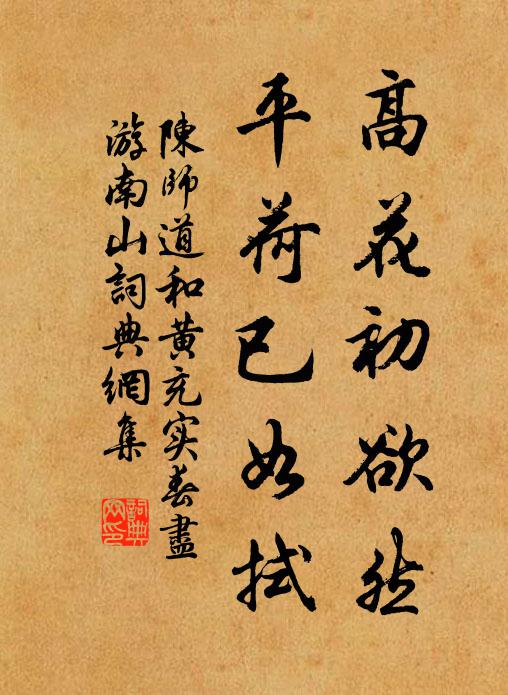 高花初欲然
平荷已如拭
陳師道和黄充实春盡
游南山詞典網集
詞典网印